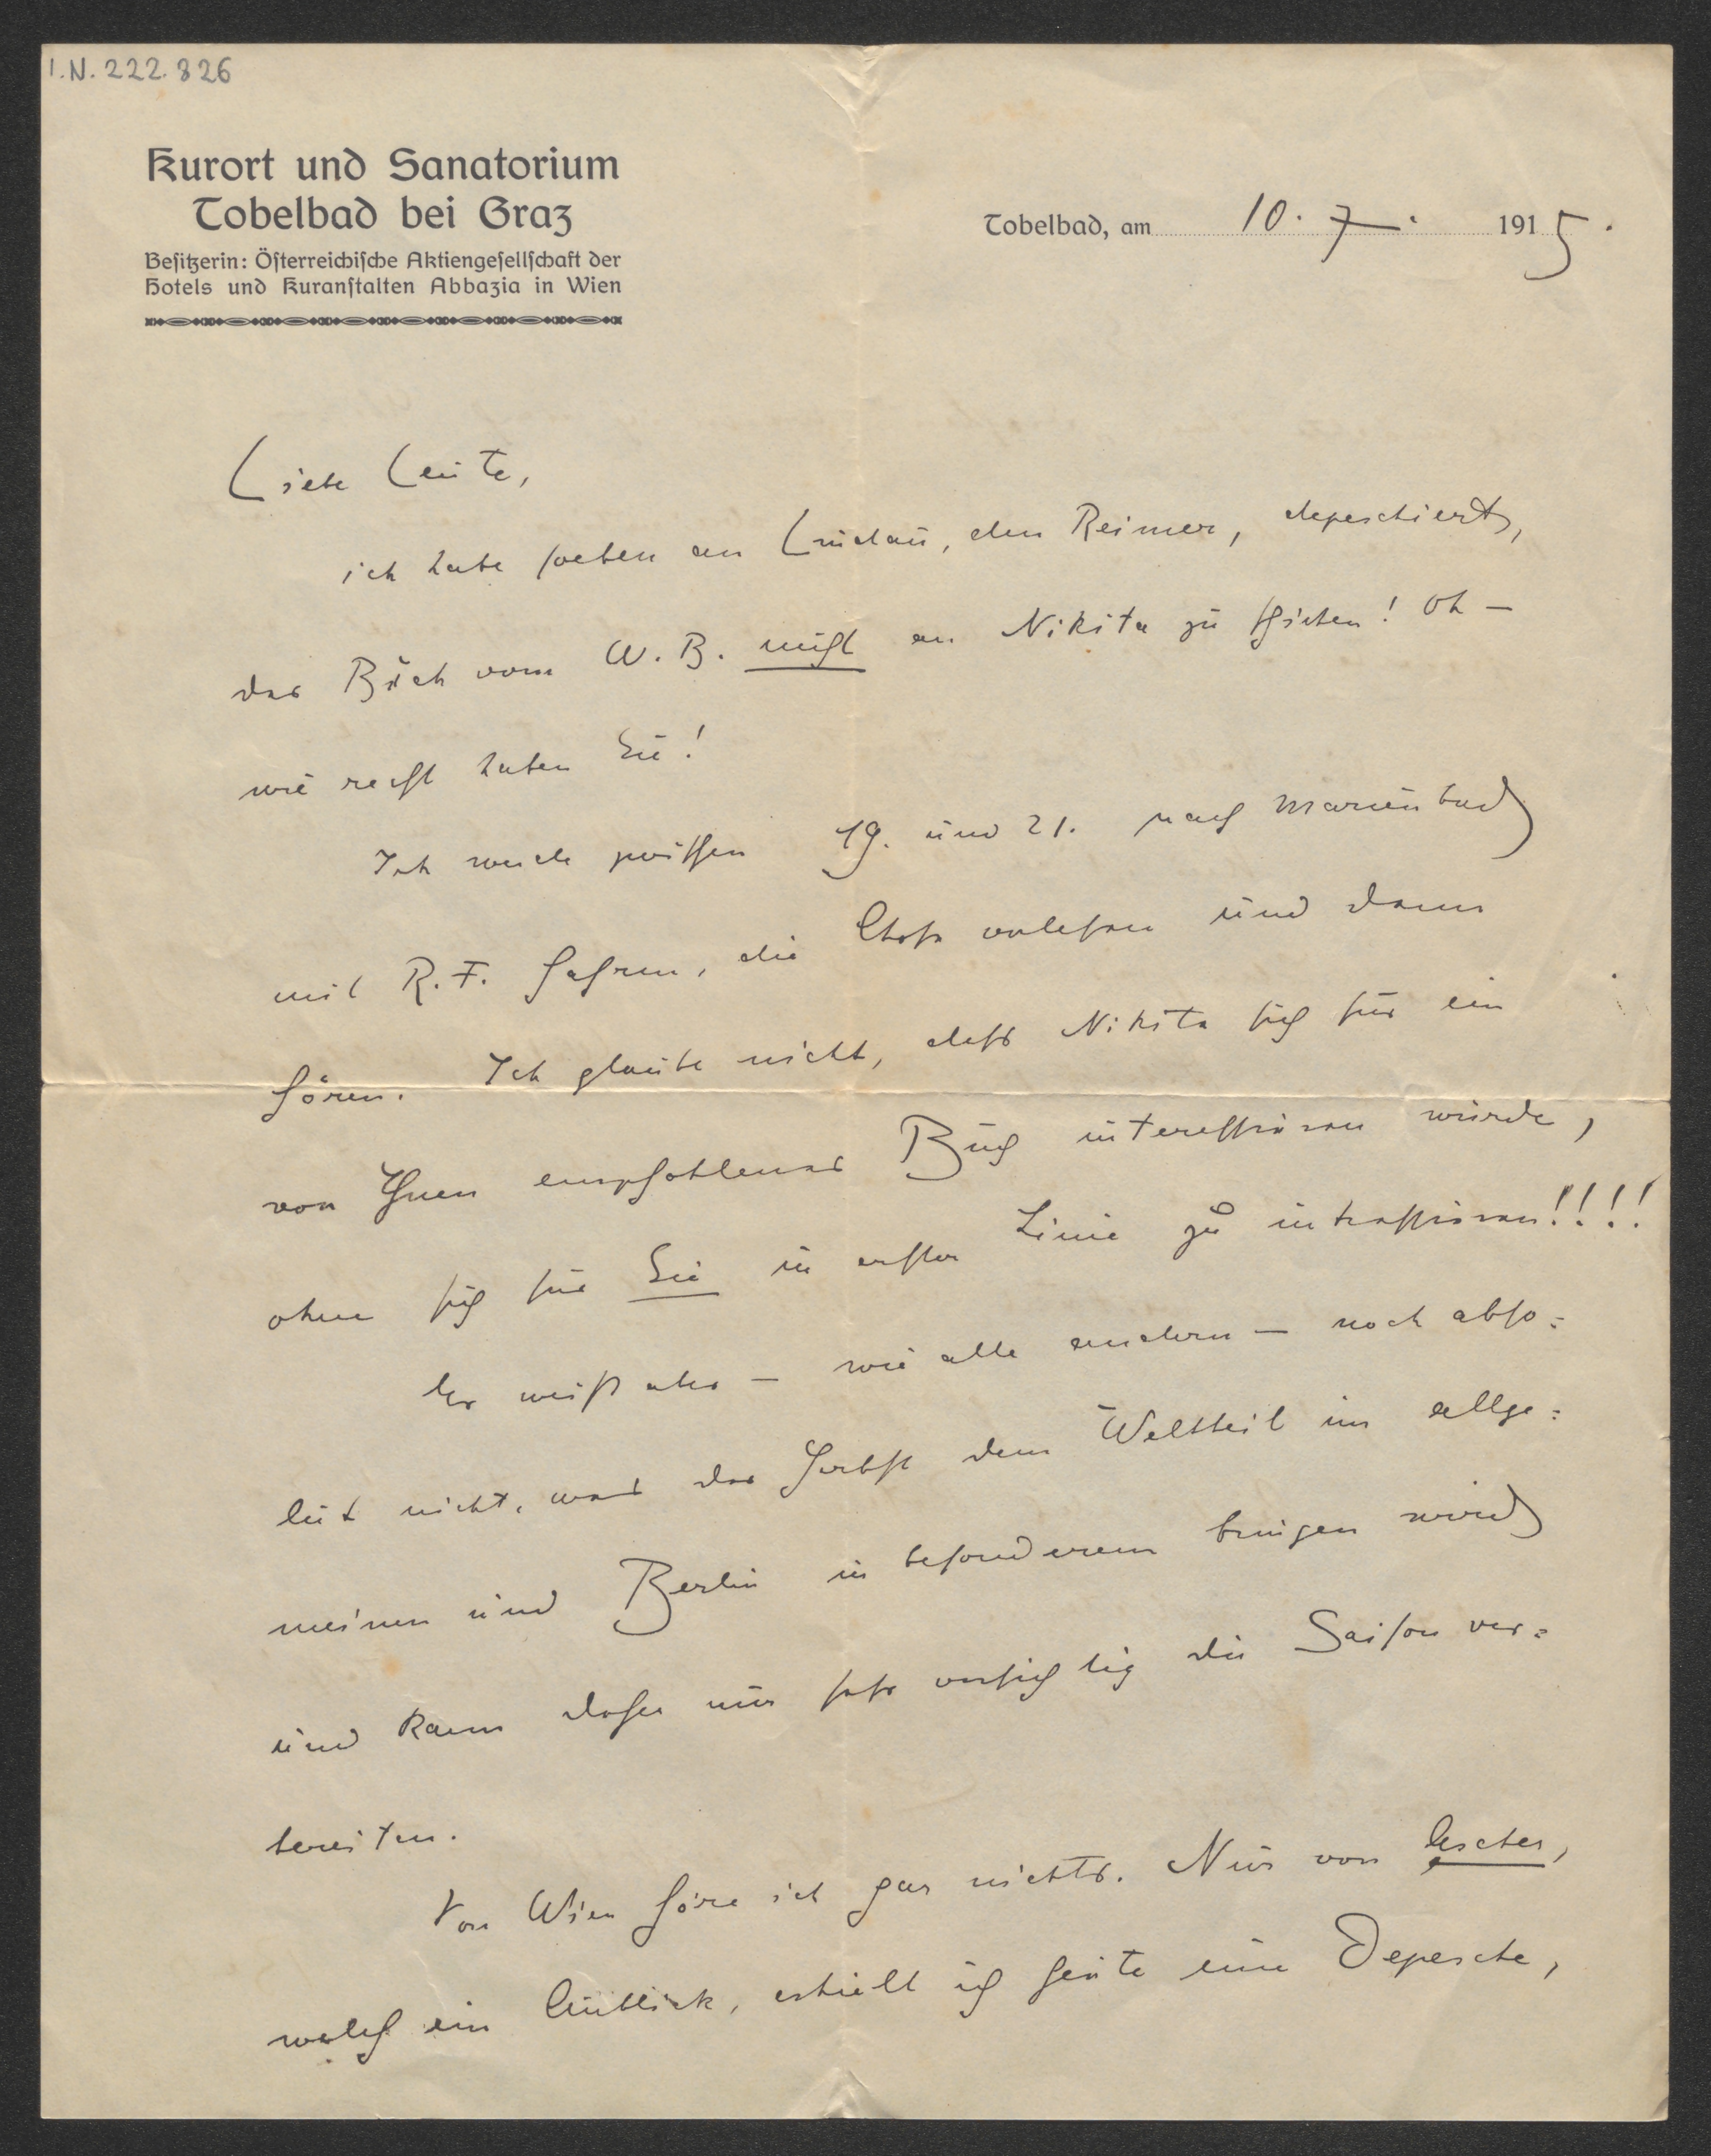 I.N. 222.826
Kurort und Sanatorium
Tobelbad bei Graz
Besitzerin: Österreichische Aktiengesellschaft der
Hotels und Kuranstalten Abbazia in Wien
Tobelbad, am 10. 7. 1915.
Liebe Leute,
ich habe soeben an Lindau, den Reimer, depeschiert,
das Buch vom W. B. nicht an Nikita zu schicken! Oh –
wie recht haben Sie!
Ich werde zwischen 19. und 21. nach Marienbad
mit R. F. fahren, die vorlesen und dann
hören. Ich glaube nicht, dass Nikita sich für ein
von Ihnen empfohlenes Buch interessieren würde,
ohne sich für Sie in erster Linie zu interessieren!!!!
Er weiß aber – wie alle andern – noch abso=
lut nicht, was der Herbst dem Weltteil im allge=
meinen und Berlin in besonderem bringen wird
und kann daher nur sehr vorsichtig die Saison vor=
bereiten.
Von Wien höre ich gar nichts. Nur von
welch ein Einblick, erhielt ich heute eine Depesche,